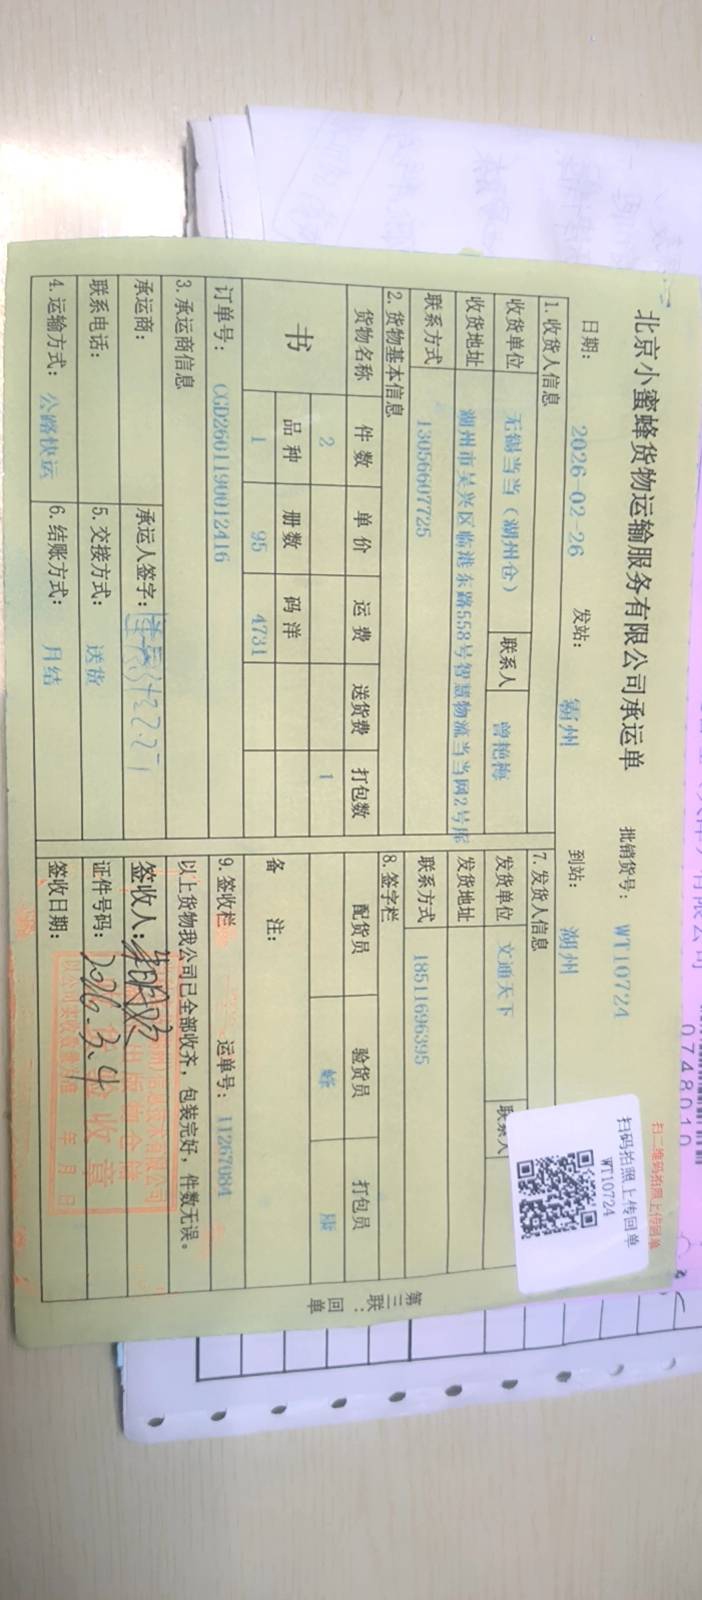 北京小蜜蜂货物运输服务有限公司承运单
批销货号： WT10724
日期： 2026-02-26 发站： 霸州 到站： 湖州
1. 收货人信息
收货单位 无锡当当（湖州仓） 联系人 曾艳梅
收货地址 湖州市吴兴区临港东路558号智慧物流当当网2号库
联系方式 13056607725
2. 货物基本信息
货物名称 件数 单价 运费 送货费 打包数
书 2 1
品种 册数 码洋
1 95 4731
订单号： CGD2601190012416
3. 承运商信息
承运商： 承运人签字：
联系电话： 5. 交接方式： 送货
4. 运输方式： 公路快运 6. 结账方式： 月结
7. 发货人信息
发货单位 文通天下 联系人
发货地址
联系方式 18511696395
8. 签字栏
配货员 验货员 打包员
蜂 康
备注：
9. 签收栏 运单号： 11267084
以上货物我公司已全部收齐，包装完好，件数无误。
签收人：
证件号码： 2026.3.4
签收日期：
验收章
年 月 日
第三联：回单
扫二维码拍照上传回单
扫码拍照上传回单
WT10724
0748010
有限公司